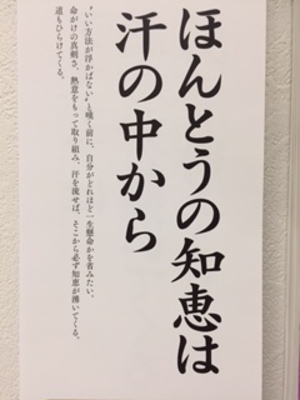 ほんとうの知恵は
汗の中から
“いい方法が浮かばない”と嘆く前に、自分がどれほど一生懸命かを省みたい。
命がけの真剣さ、熱意をもって取り組み、汗を流せば、そこから必ず知恵が湧いてくる。
道もひらけてくる。